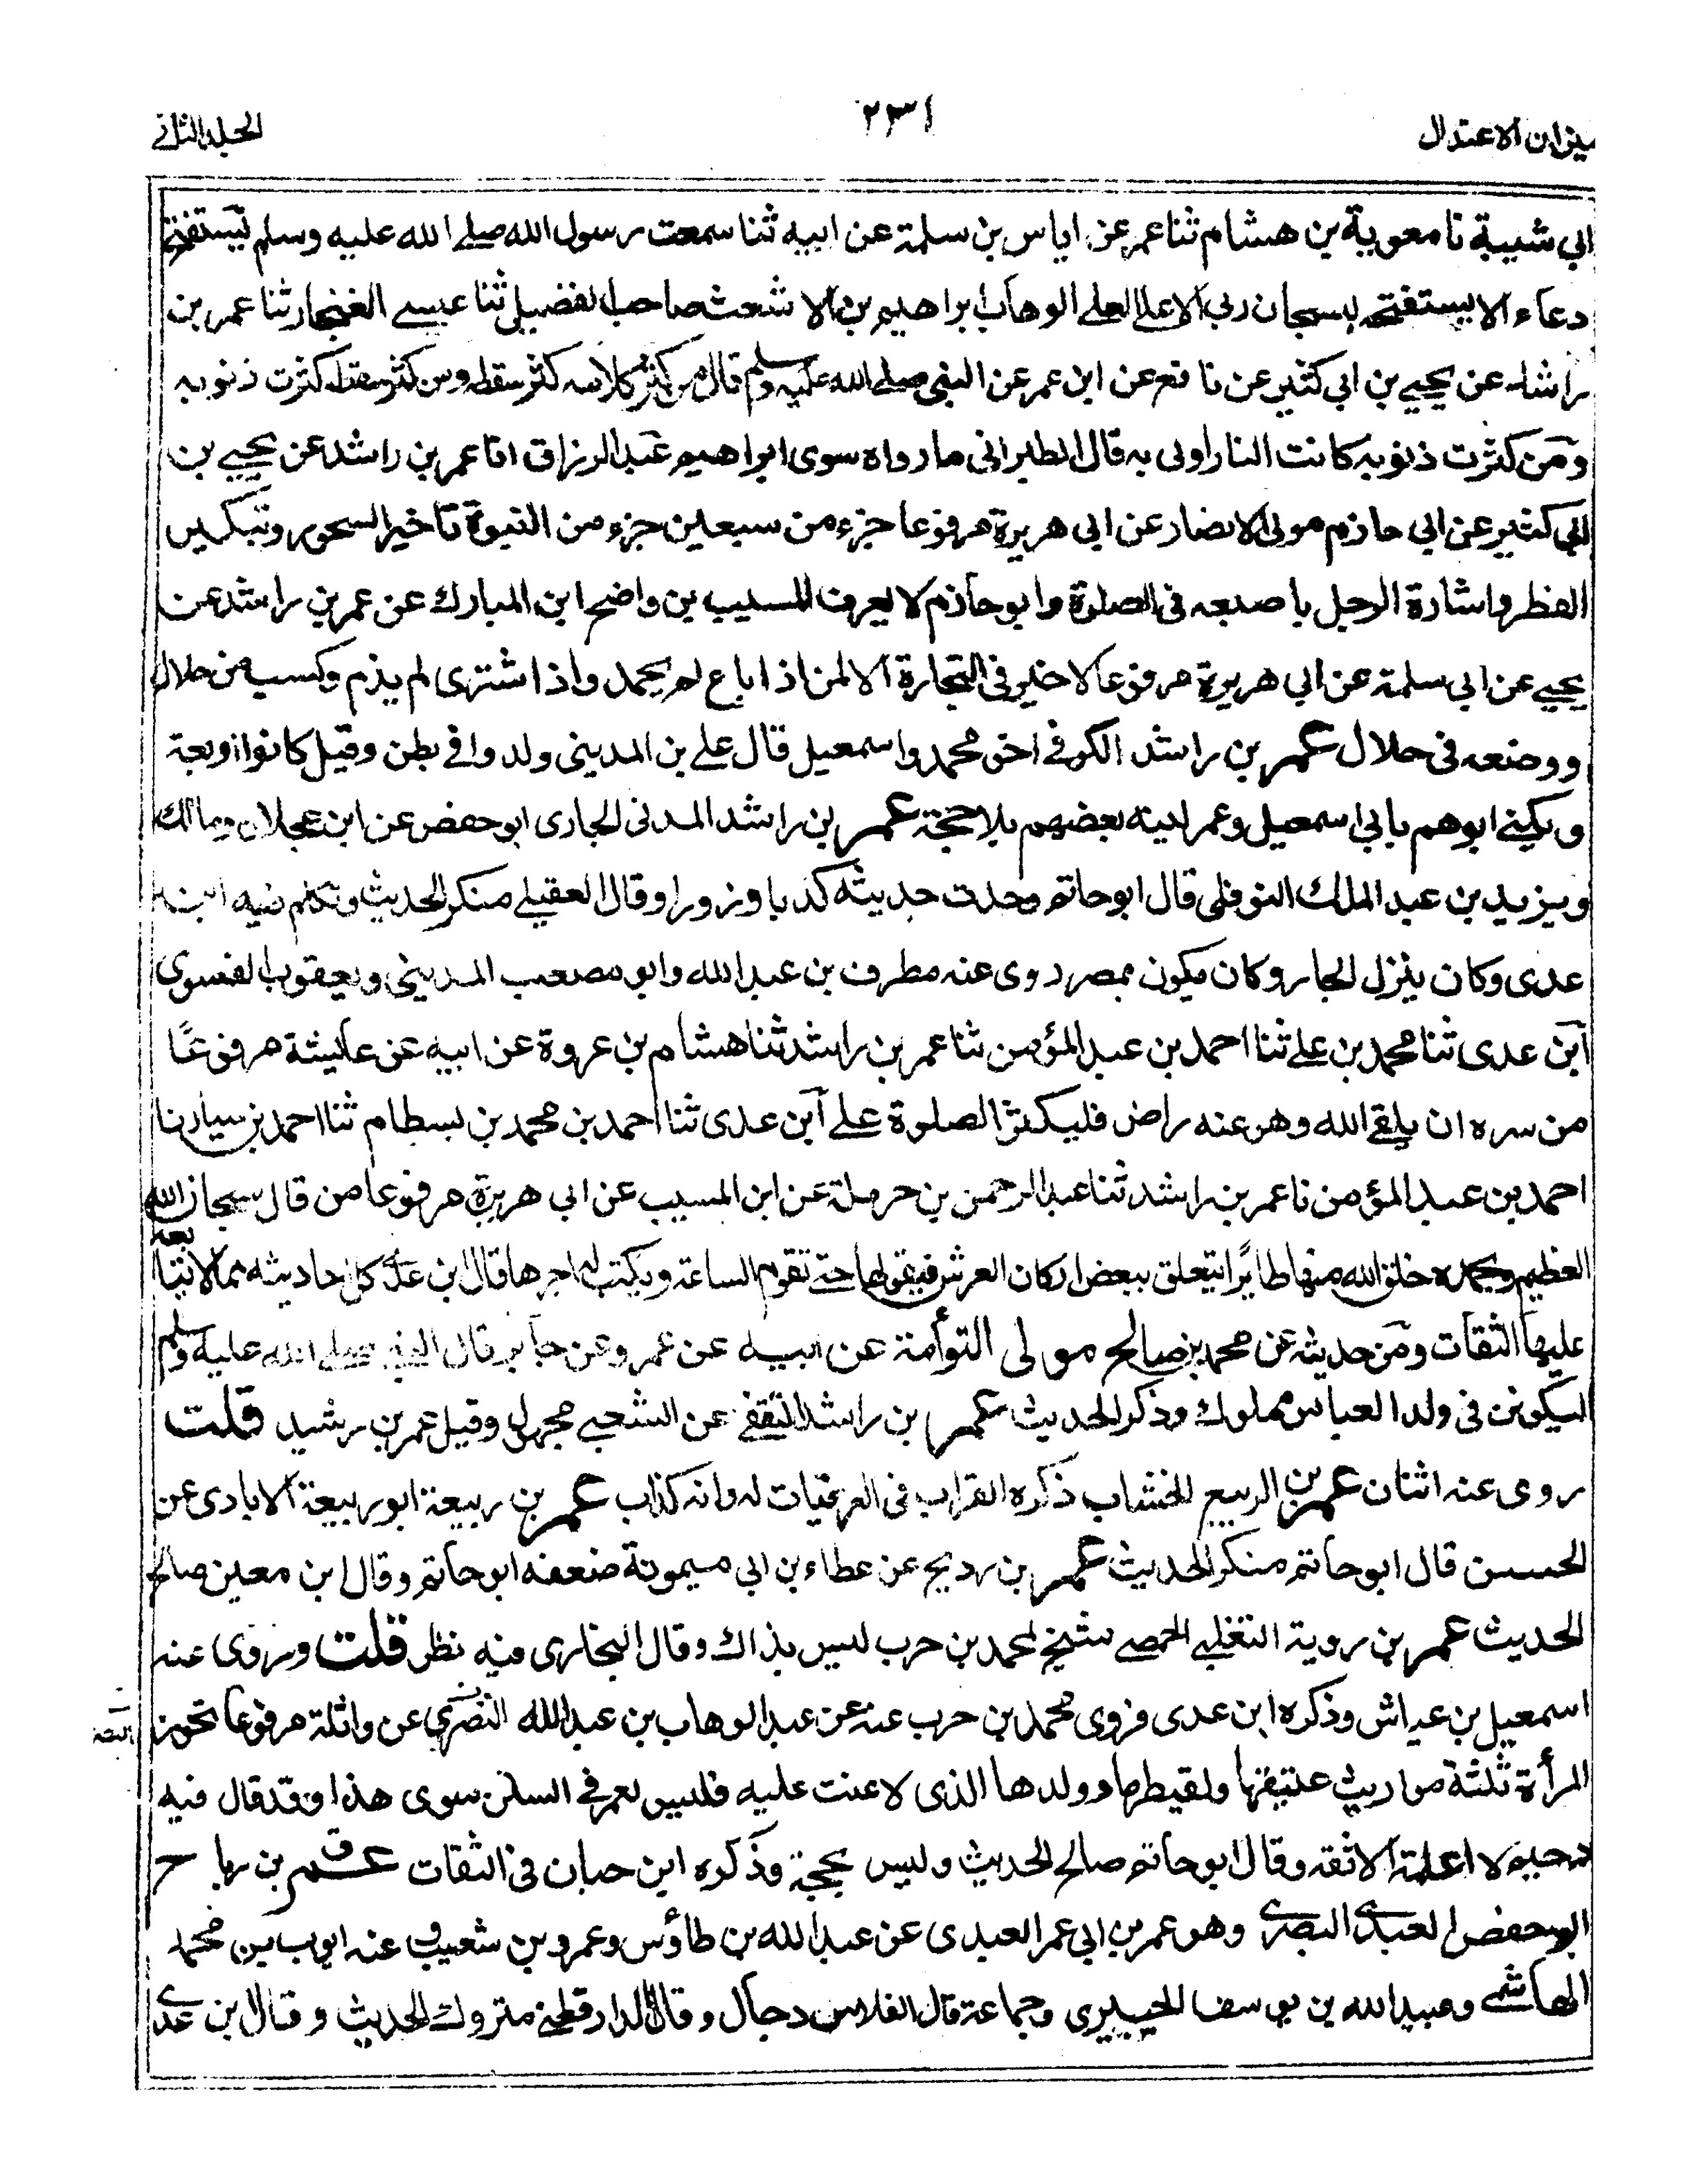 ميزان الاعتدال
٢٣١
الجلد الثاني
ابي شيبة نا معوية بن هشام ثنا عمر عن اياس بن سلمة عن ابيه ثنا سمعت رسول الله صلے الله عليه وسلم يستفتح
دعاء الا يستفتحه بسبحان ربي الاعلے العلے الوهاب ابراهيم بن الاشعث صاحب الفضيل ثنا عيسے الغنجار ثنا عمر بن
راشد عن يحيے بن ابي كثير عن نافع عن ابن عمر عن النبي صلے الله عليه وسلم قال من كثر كلامه كثر سقطه ومن كثر سقطه كثرت ذنوبه
ومن كثرت ذنوبه كانت النار اولى به قال الطبراني ما رواه سوى ابراهيم عبد الرزاق انا عمر بن راشد عن يحيے بن
ابي كثير عن ابي حازم مولى الانصار عن ابي هريرة مرفوعا جزء من سبعين جزء من النبوة تاخير السحور وتبكير
الفطر واشارة الرجل باصبعه في الصلوة وابو حازم لا يعرف المسيب بن واضح ابن المبارك عن عمر بن راشد عن
يحيے عن ابي سلمة عن ابي هريرة مرفوعا لا خير في التجارة الا لمن اذا باع لم يحمد واذا اشترى لم يذم وكسب من حلال
ووضعه في حلال عمر بن راشد الكوفے اخو محمد واسمعيل قال علے بن المديني ولدوا في بطن وقيل كانوا اربعة
ويكنے ابوهم بابي اسمعيل وعمر لينه بعضهم بلا حجة عمر بن راشد المدني الجاري ابو حفص عن ابن عجلان ومالك
ويزيد بن عبد الملك النوفلي قال ابو حاتم وجدت حديثه كذبا وزورا وقال العقيلے منكر الحديث وتكلم فيه ابن
عدي وكان ينزل الجار وكان يكون بمصر روى عنه مطرف بن عبد الله وابو مصعب المديني ويعقوب الفسوى
ابن عدى ثنا محمد بن علے ثنا احمد بن عبد المؤمن ثنا عمر بن راشد ثنا هشام بن عروة عن ابيه عن عايشة مرفوعًا
من سره ان يلقے الله وهو عنه راض فليكثر الصلوة علے ابن عدى ثنا احمد بن محمد بن بسطام ثنا احمد بن سيار نا
احمد بن عبد المؤمن نا عمر بن راشد ثنا عبد الرحمن بن حرملة عن ابن المسيب عن ابي هريرة مرفوعا من قال سبحان الله
العظيم وبحمده خلق الله منها طايرًا يتعلق ببعض اركان العرش فيقولها حتے تقوم الساعة ويكتب له اجرها قال ابن عدي كل احاديثه مما لا يتابعه
عليها الثقات ومن حديثه عن محمد بن صالح مولى التوأمة عن ابيه عن عمرو عن جابر قال النبي صلے الله عليه وسلم
ليكونن في ولد العباس مملوك وذكر الحديث عمر بن راشد الثقفے عن الشعبے مجهول وقيل عمر بن رشيد قلت
روى عنه اثنان عمر بن الربيع الخشاب ذكره القراب في الوفيات له وانه كذاب عمر بن ربيعة ابو ربيعة الايادى عن
الحسن قال ابو حاتم منكر الحديث عمر بن رديح عن عطاء بن ابي ميمونة ضعفه ابو حاتم وقال ابن معين صالح
الحديث عمر بن روبة التغلبے الحمصے شيخ لمحمد بن حرب ليس بذاك وقال البخارى فيه نظر قلت وروى عنه
اسمعيل بن عياش وذكره ابن عدى فروى محمد بن حرب عنه عن عبد الوهاب بن عبد الله النصري عن واثلة مرفوعا تحوز
المرأة ثلثة مواريث عتيقها ولقيطها وولدها الذى لاعنت عليه فليس لعمر في السنن سوى هذا وقد قال فيه
دحيم لا اعلمه الا ثقة وقال ابو حاتم صالح الحديث وليس بحجة وذكره ابن حبان في الثقات ق عمر بن رباح
ابو حفص العبدى البصرى وهو عمر بن ابي عمر العبدى عن عبد الله بن طاؤس وعمرو بن شعيب وعنه ايوب بن محمد
الهاشمے وعبيد الله بن يوسف الجبيري وجماعة قال الفلاس دجال وقال الدارقطنے متروك الحديث وقال ابن عدى